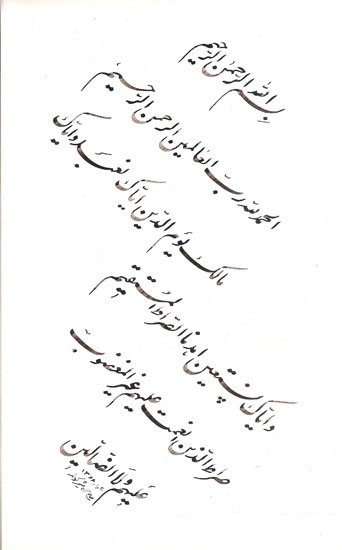 بسم الله الرحمن الرحیم
الحمد لله رب العالمین الرحمن الرحیم
مالک یوم الدین ایاک نعبد و ایاک
نستعین اهدنا الصراط المستقیم
صراط الذین انعمت علیهم غیر المغضوب
علیهم ولا الضالین